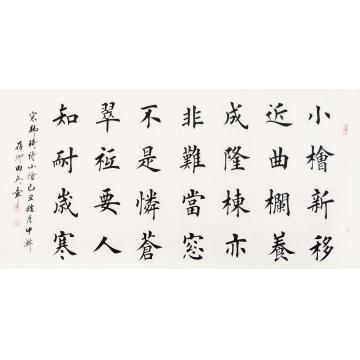 小檜新移
近曲欄養
成隆棟亦
非難當窓
不是憐蒼
翠祇要人
知耐歲寒
宋韓琦詩小檜己丑臘月中浣
存卿田英章